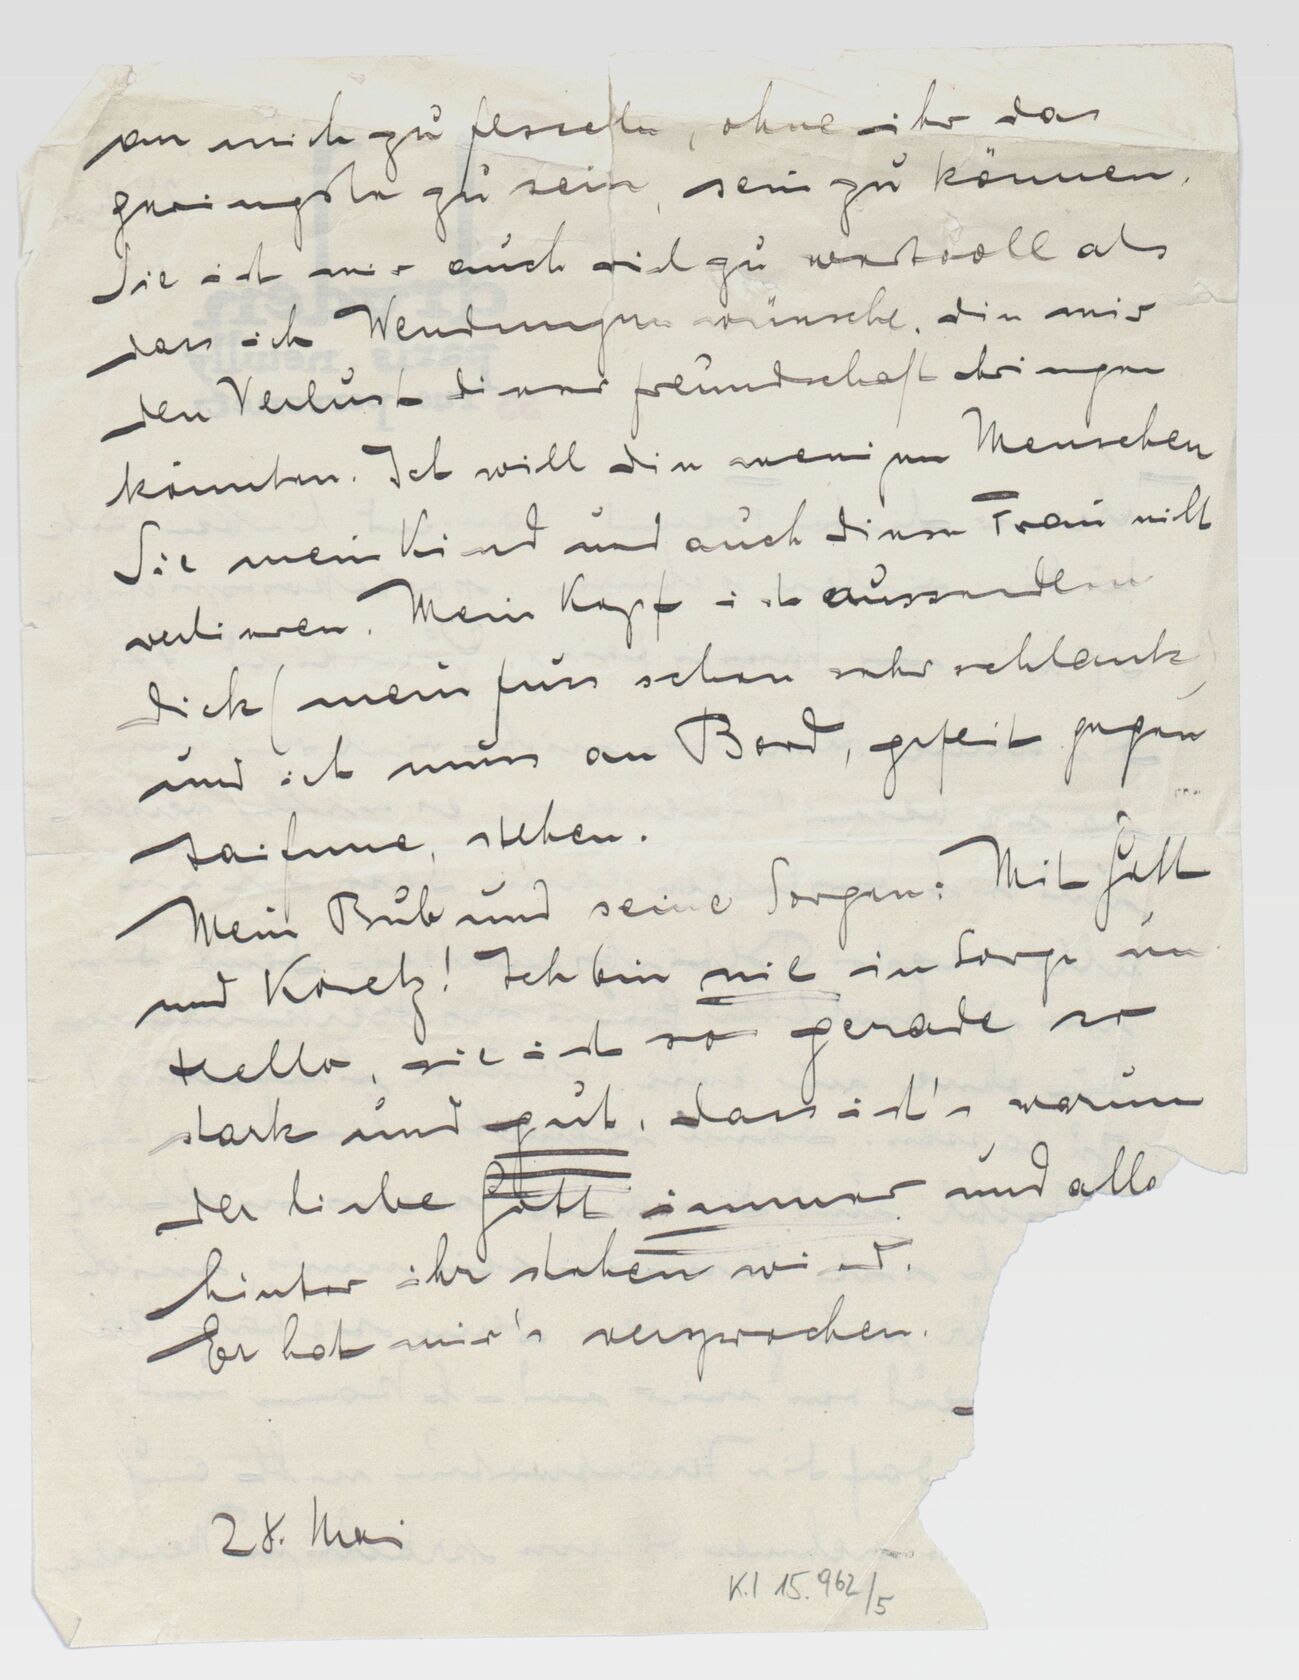 an mich zu fesseln, ohne ihr das
geringste zu sein, sein zu können.
Sie ist mir auch viel zu wertvoll als
dass ich Wendungen wünsche, die mir
den Verlust dieser Freundschaft bringen
könnten. Ich will die wenigen Menschen
Sie mein Kind und auch diese Frau nicht
verlieren. Mein Kopf ist ausserdem
dick (mein fuss schon sehr schlank)
und ich muss an Bord, gefeit gegen
Taifune, stehen.
Mein Bub und seine Sorgen: Mit Gott
und Koretz! Ich bin nie in Sorge um
Hella, sie ist so gerade so
stark und gut, dass ist's warum
der liebe Gott immer und alle
hinter ihr stehen wird.
Er hat mir's versprochen.
28. Mai
K.I 15.962/5